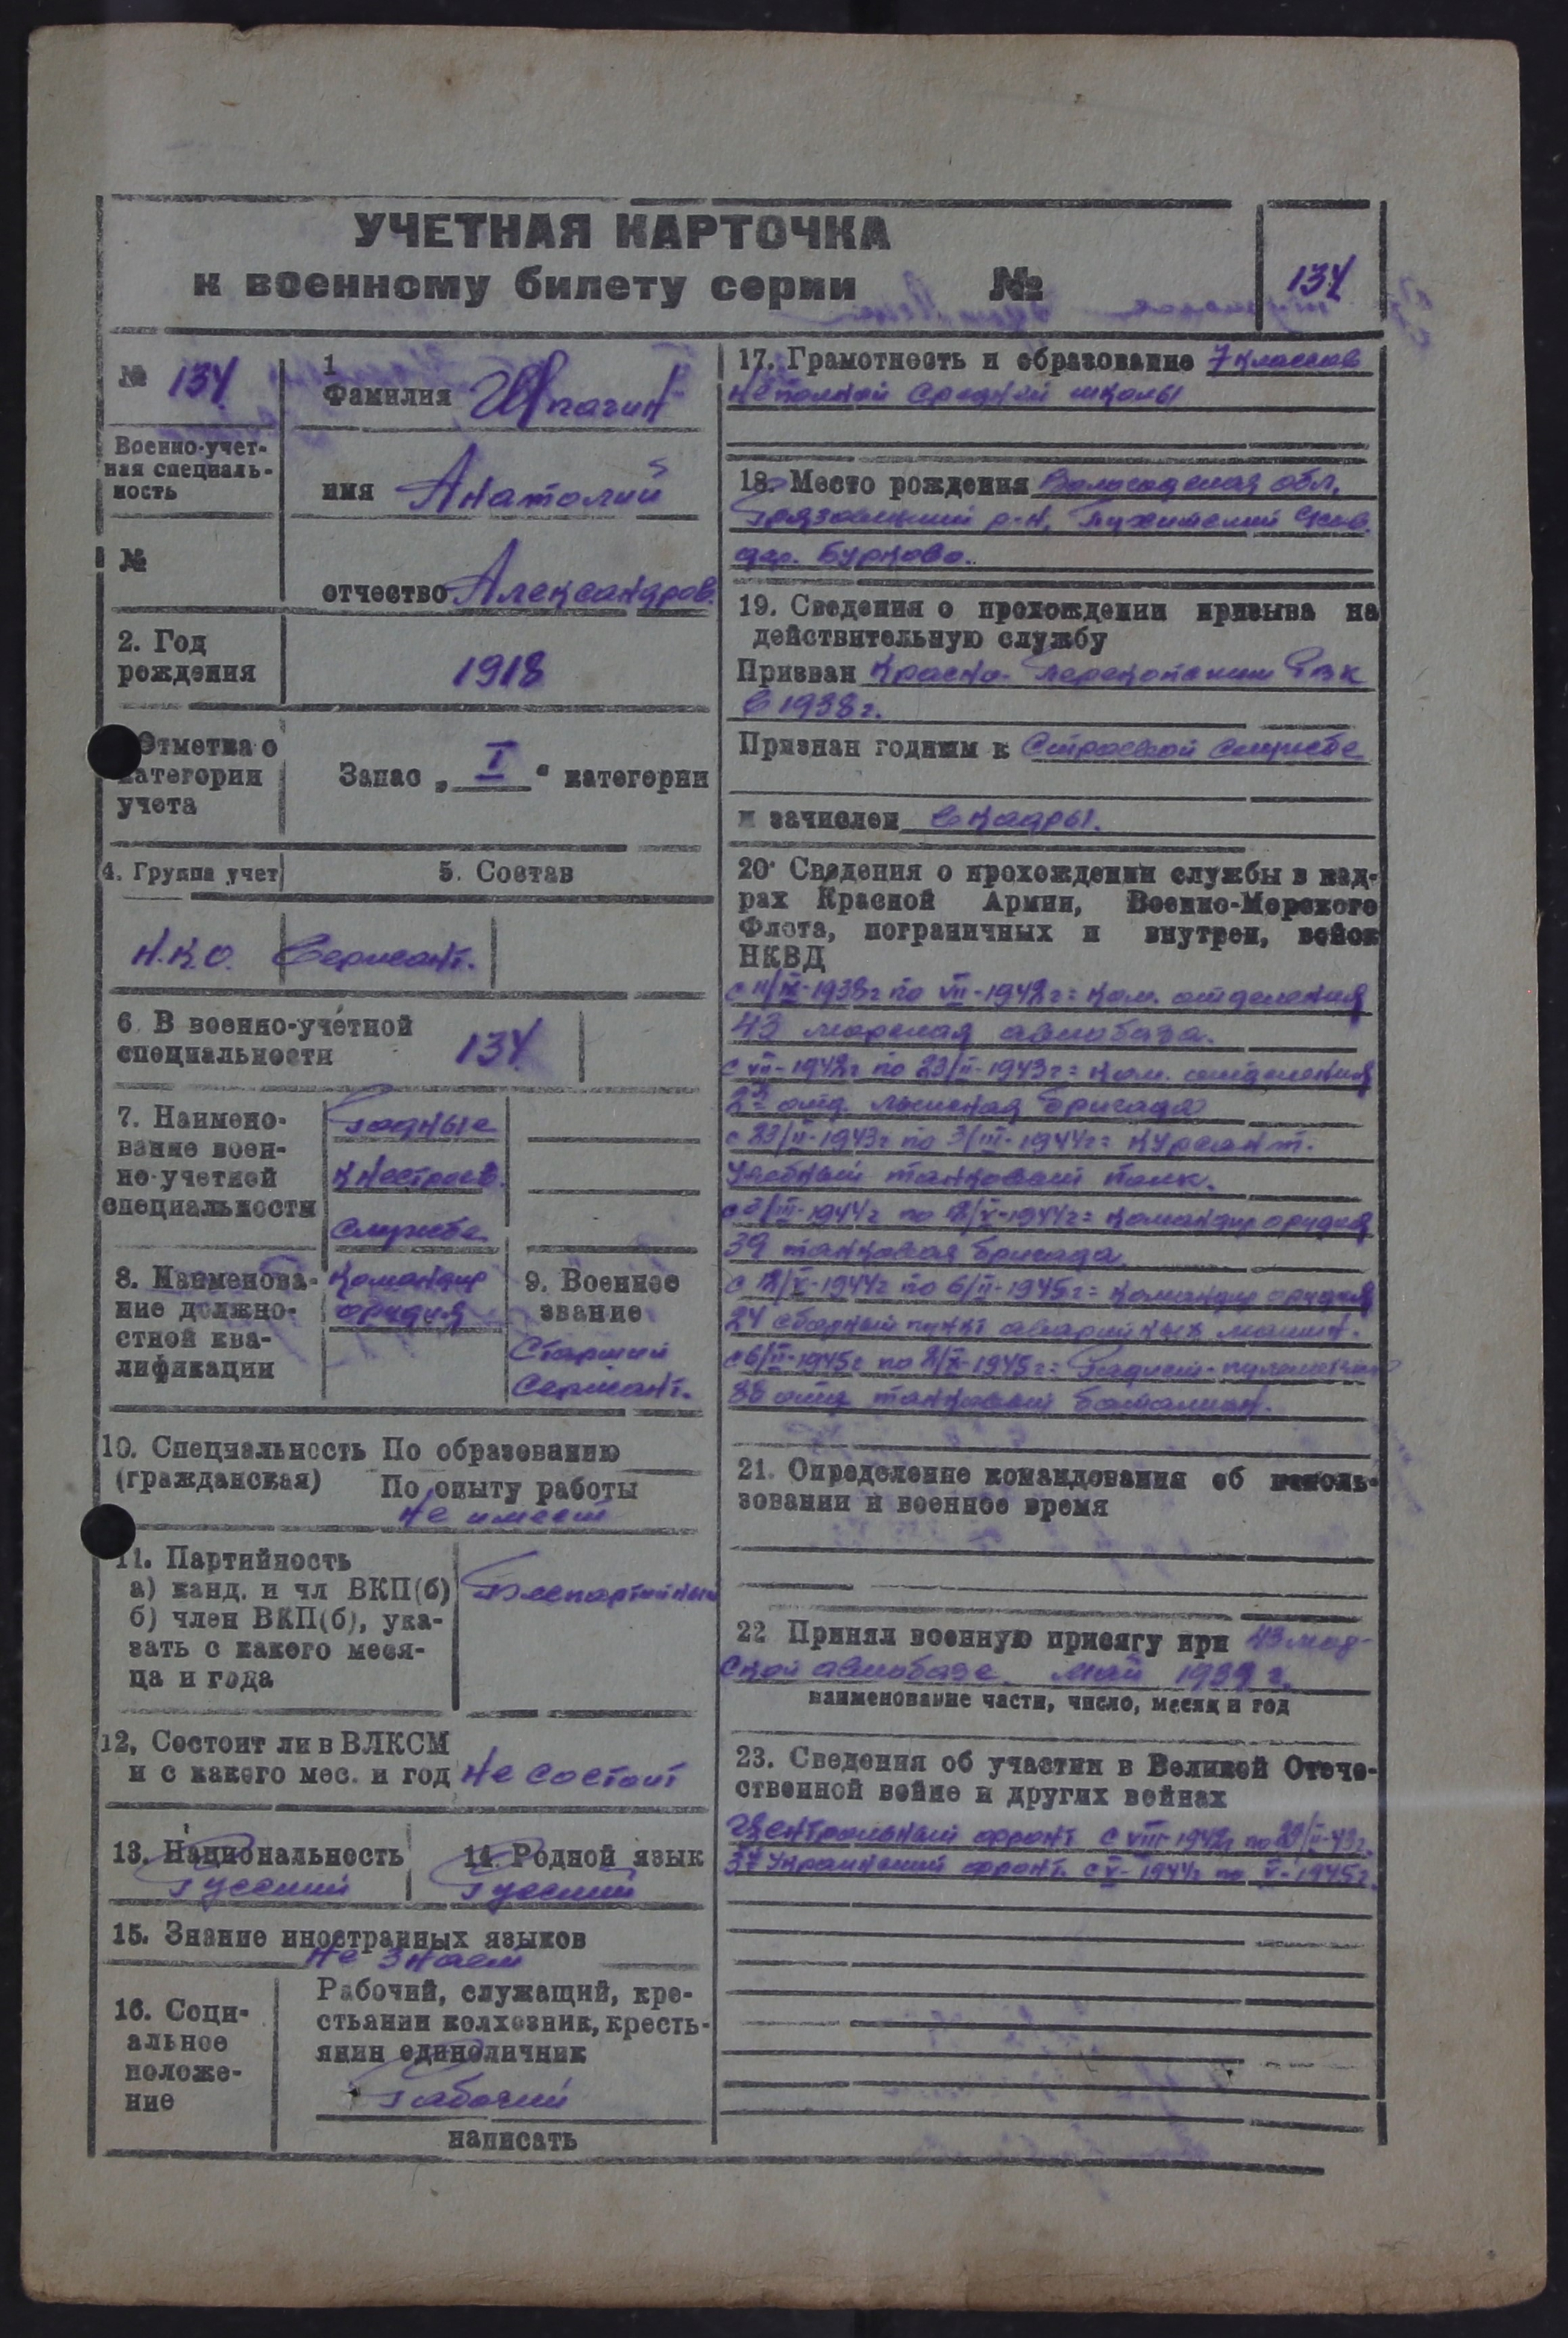 УЧЕТНАЯ КАРТОЧКА
к военному билету серии №
134
№ 134
1
Фамилия Шпагин
Военно-учет-
ная специаль-
ность
имя Анатолий
№
отчество Александров.
2. Год
рождения
1918
Отметка о
категории
учета
Запас „ I “ категории
4. Группа учет
5. Состав
Н.К.О. Сержант.
6. В военно-учетной
специальности
134
7. Наимено-
вание воен-
но-учетной
специальности
Годные
к нестроев.
службе
8. Наименова-
ние должно-
стной ква-
лификации
Командир
орудия
9. Военное
звание
Старший
Сержант.
10. Специальность По образованию
(гражданская) По опыту работы
Не имеет
11. Партийность
а) канд. и чл ВКП(б)
б) член ВКП(б), ука-
зать с какого меся-
ца и года
Беспартийный
12, Состоит ли в ВЛКСМ
и с какого мес. и год Не состоит
13. Национальность
Русский
14. Родной язык
Русский
15. Знание иностранных языков
Не знает
16. Соци-
альное
положе-
ние
Рабочий, служащий, кре-
стьянин колхозник, кресть-
янин единоличник
Рабочий
написать
17. Грамотность и образование 7 классов
неполной средней школы
18. Место рождения Вологодская обл,
Грязовецкий р-н,
дер. Бурково.
19. Сведения о прохождении призыва на
действительную службу
Призван Красно-Перекопским РВК
в 1938 г.
Признан годным к Строевой службе
и зачислен в кадры.
20. Сведения о прохождении службы в кад-
рах Красной Армии, Военно-Морского
Флота, пограничных и внутрен, войск
НКВД
с 11/IX-1938г по VII-1942г = Ком. отделения
43 морская авиобаза.
с VII-1942г по 23/II-1943г = Ком. отделения
2я отд. лыжная бригада
с 23/II-1943г по 3/III-1944г = Курсант.
Учебный танковый полк.
с 3/III-1944г по 2/V-1944г = Командир орудия
39 танковая бригада
с 2/V-1944г по 6/II-1945г = Командир орудия
24 сборный пункт аварийных машин.
с 6/II-1945г по 2/X-1945г = Радист-пулеметчик
88 отд танковый батальон.
21. Определение командования об исполь-
зовании в военное время
22 Принял военную присягу при 43 мор-
ской авиобазе. Май 1939 г.
наименование части, число, месяц и год
23. Сведения об участии в Великой Отече-
ственной войне и других войнах
Центральный фронт с VIII-1942г по 23/II-43г.
3й Украинский фронт. с V-1944г по V-1945г.